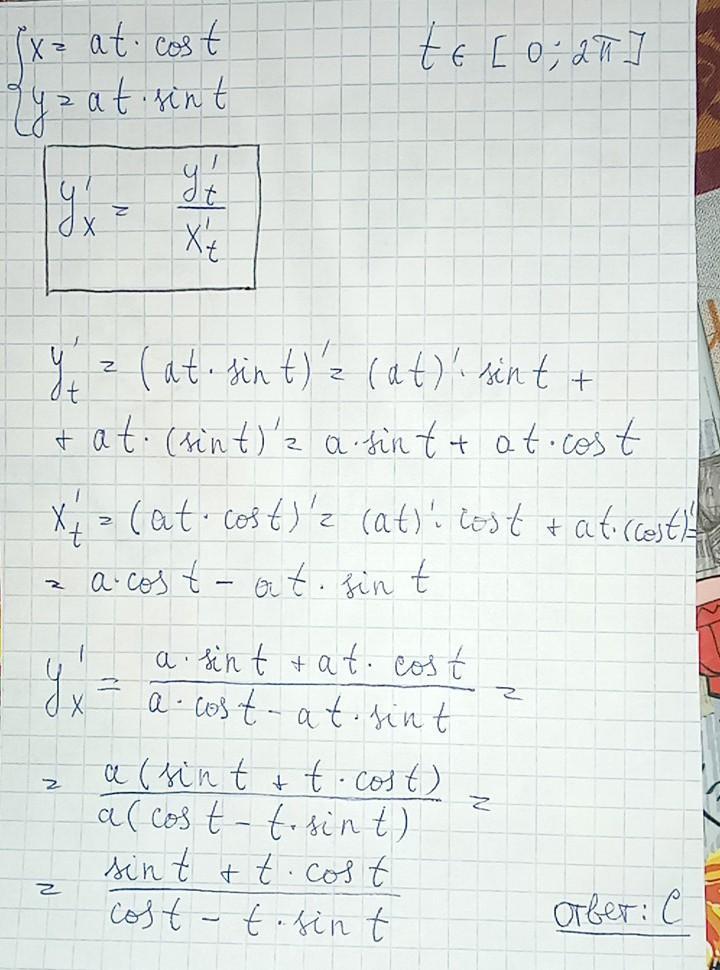 {x = at · cos t t ∈ [0; 2π]
{y = at · sin t
y'x = y't / x't
y't = (at · sin t)' = (at)' · sin t +
+ at · (sin t)' = a · sin t + at · cos t
x't = (at · cos t)' = (at)' · cos t + at · (cos t)' =
= a · cos t - at · sin t
y'x = a · sin t + at · cos t / a · cos t - at · sin t =
= a(sin t + t · cos t) / a(cos t - t · sin t) =
= sin t + t · cos t / cos t - t · sin t
ответ: C